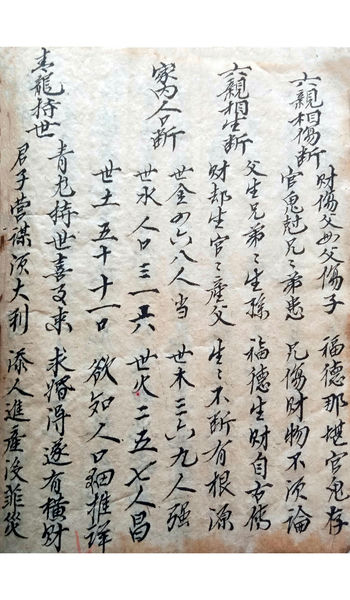 六親相傷断
财傷父母父傷子 福德那堪官鬼存
官鬼尅兄〻弟患 兄傷财物不須論
六親相生断
父生兄弟〻生孫 福德生财自古傳
财却生官〻產父 生〻不断有根源
家内人口断
世金四六八人当 世木三六九人强
世水人口三一六 世火二五七人昌
世土五十十一口 欲知人口細推詳
青龍持世
青龙持世喜又来 求婚得遂有横财
君子营谋须大利 添人進產没菲災